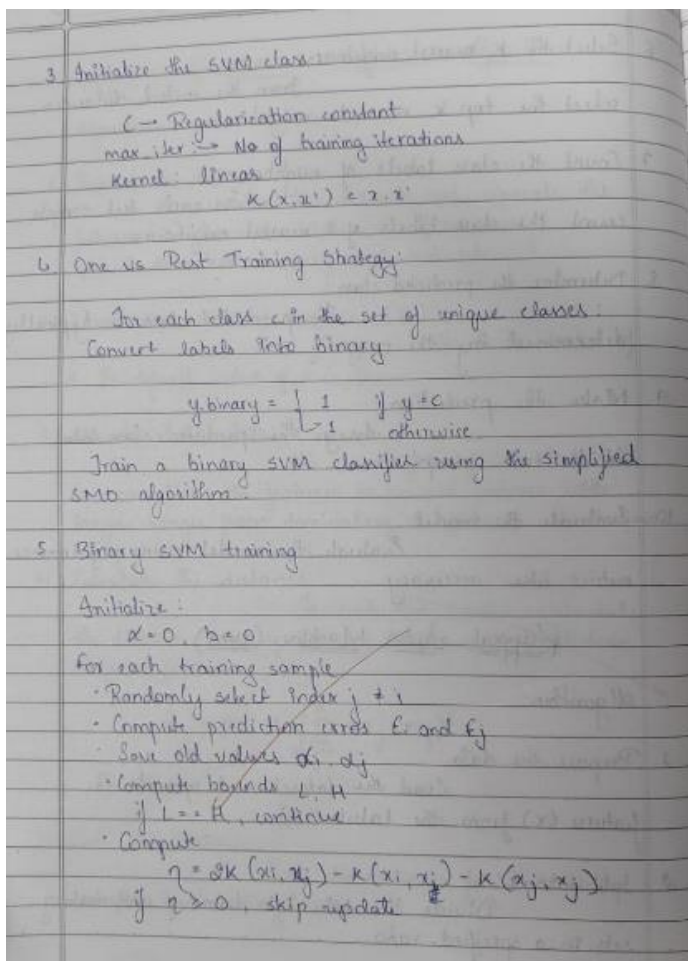 3 Initialize the SVM class
C → Regularization constant
max_iter: → No of training iterations
Kernel: linear
K(x,x') = x.x'
4 One vs Rest Training Strategy:
For each class c in the set of unique classes:
Convert labels into binary
y.binary = { 1 if y=c
-1 otherwise
Train a binary SVM classifier using the simplified
SMO algorithm.
5 Binary SVM training
Initialize:
α=0, b=0
for each training sample
• Randomly select index j ≠ i
• Compute prediction errors Ei and Ej
• Save old values αi, αj
• Compute bounds L, H
if L == H, continue
• Compute
η = 2K(xi, xj) - K(xi, xj) - K(xj, xj)
if η ≥ 0, skip update